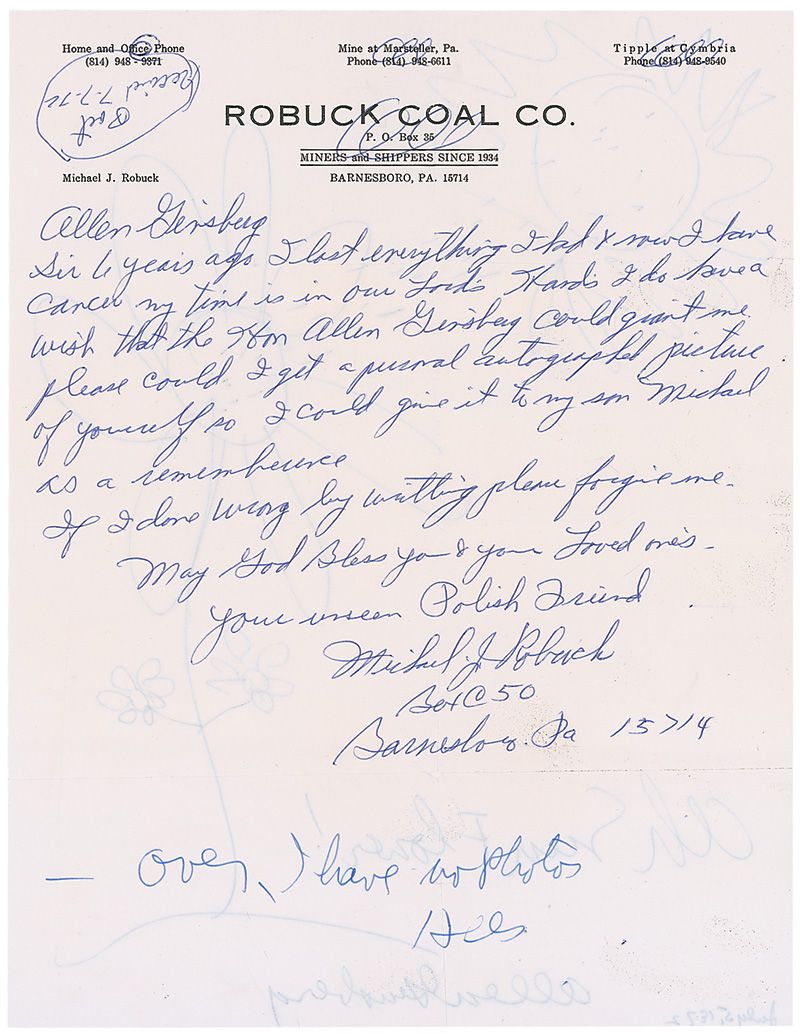 Home and Office Phone
(814) 948 - 9371
Mine at Marsteller, Pa.
Phone (814) 948-6611
Tipple at Cymbria
Phone (814) 948-9540
Received 7-7-72
ROBUCK COAL CO.
P. O. Box 35
MINERS and SHIPPERS SINCE 1934
Michael J. Robuck
BARNESBORO, PA. 15714
Allen Ginsberg
Sir 6 years ago I lost everything I had & now I have
cancer my time is in our Lords Hands I do have a
wish that the Hon Allen Ginsberg could grant me.
please could I get a personal autographed picture
of yourself so I could give it to my son Michael
as a rememberence
If I done wrong by writting please forgive me.
May God Bless you & your Loved one's.
your unseen Polish Friend
Michael J Robuck
Box C 50
Barnesboro Pa 15714
— Over, I have no photos
Ah Sun Flower!
Allen Ginsberg
July 5, 1972